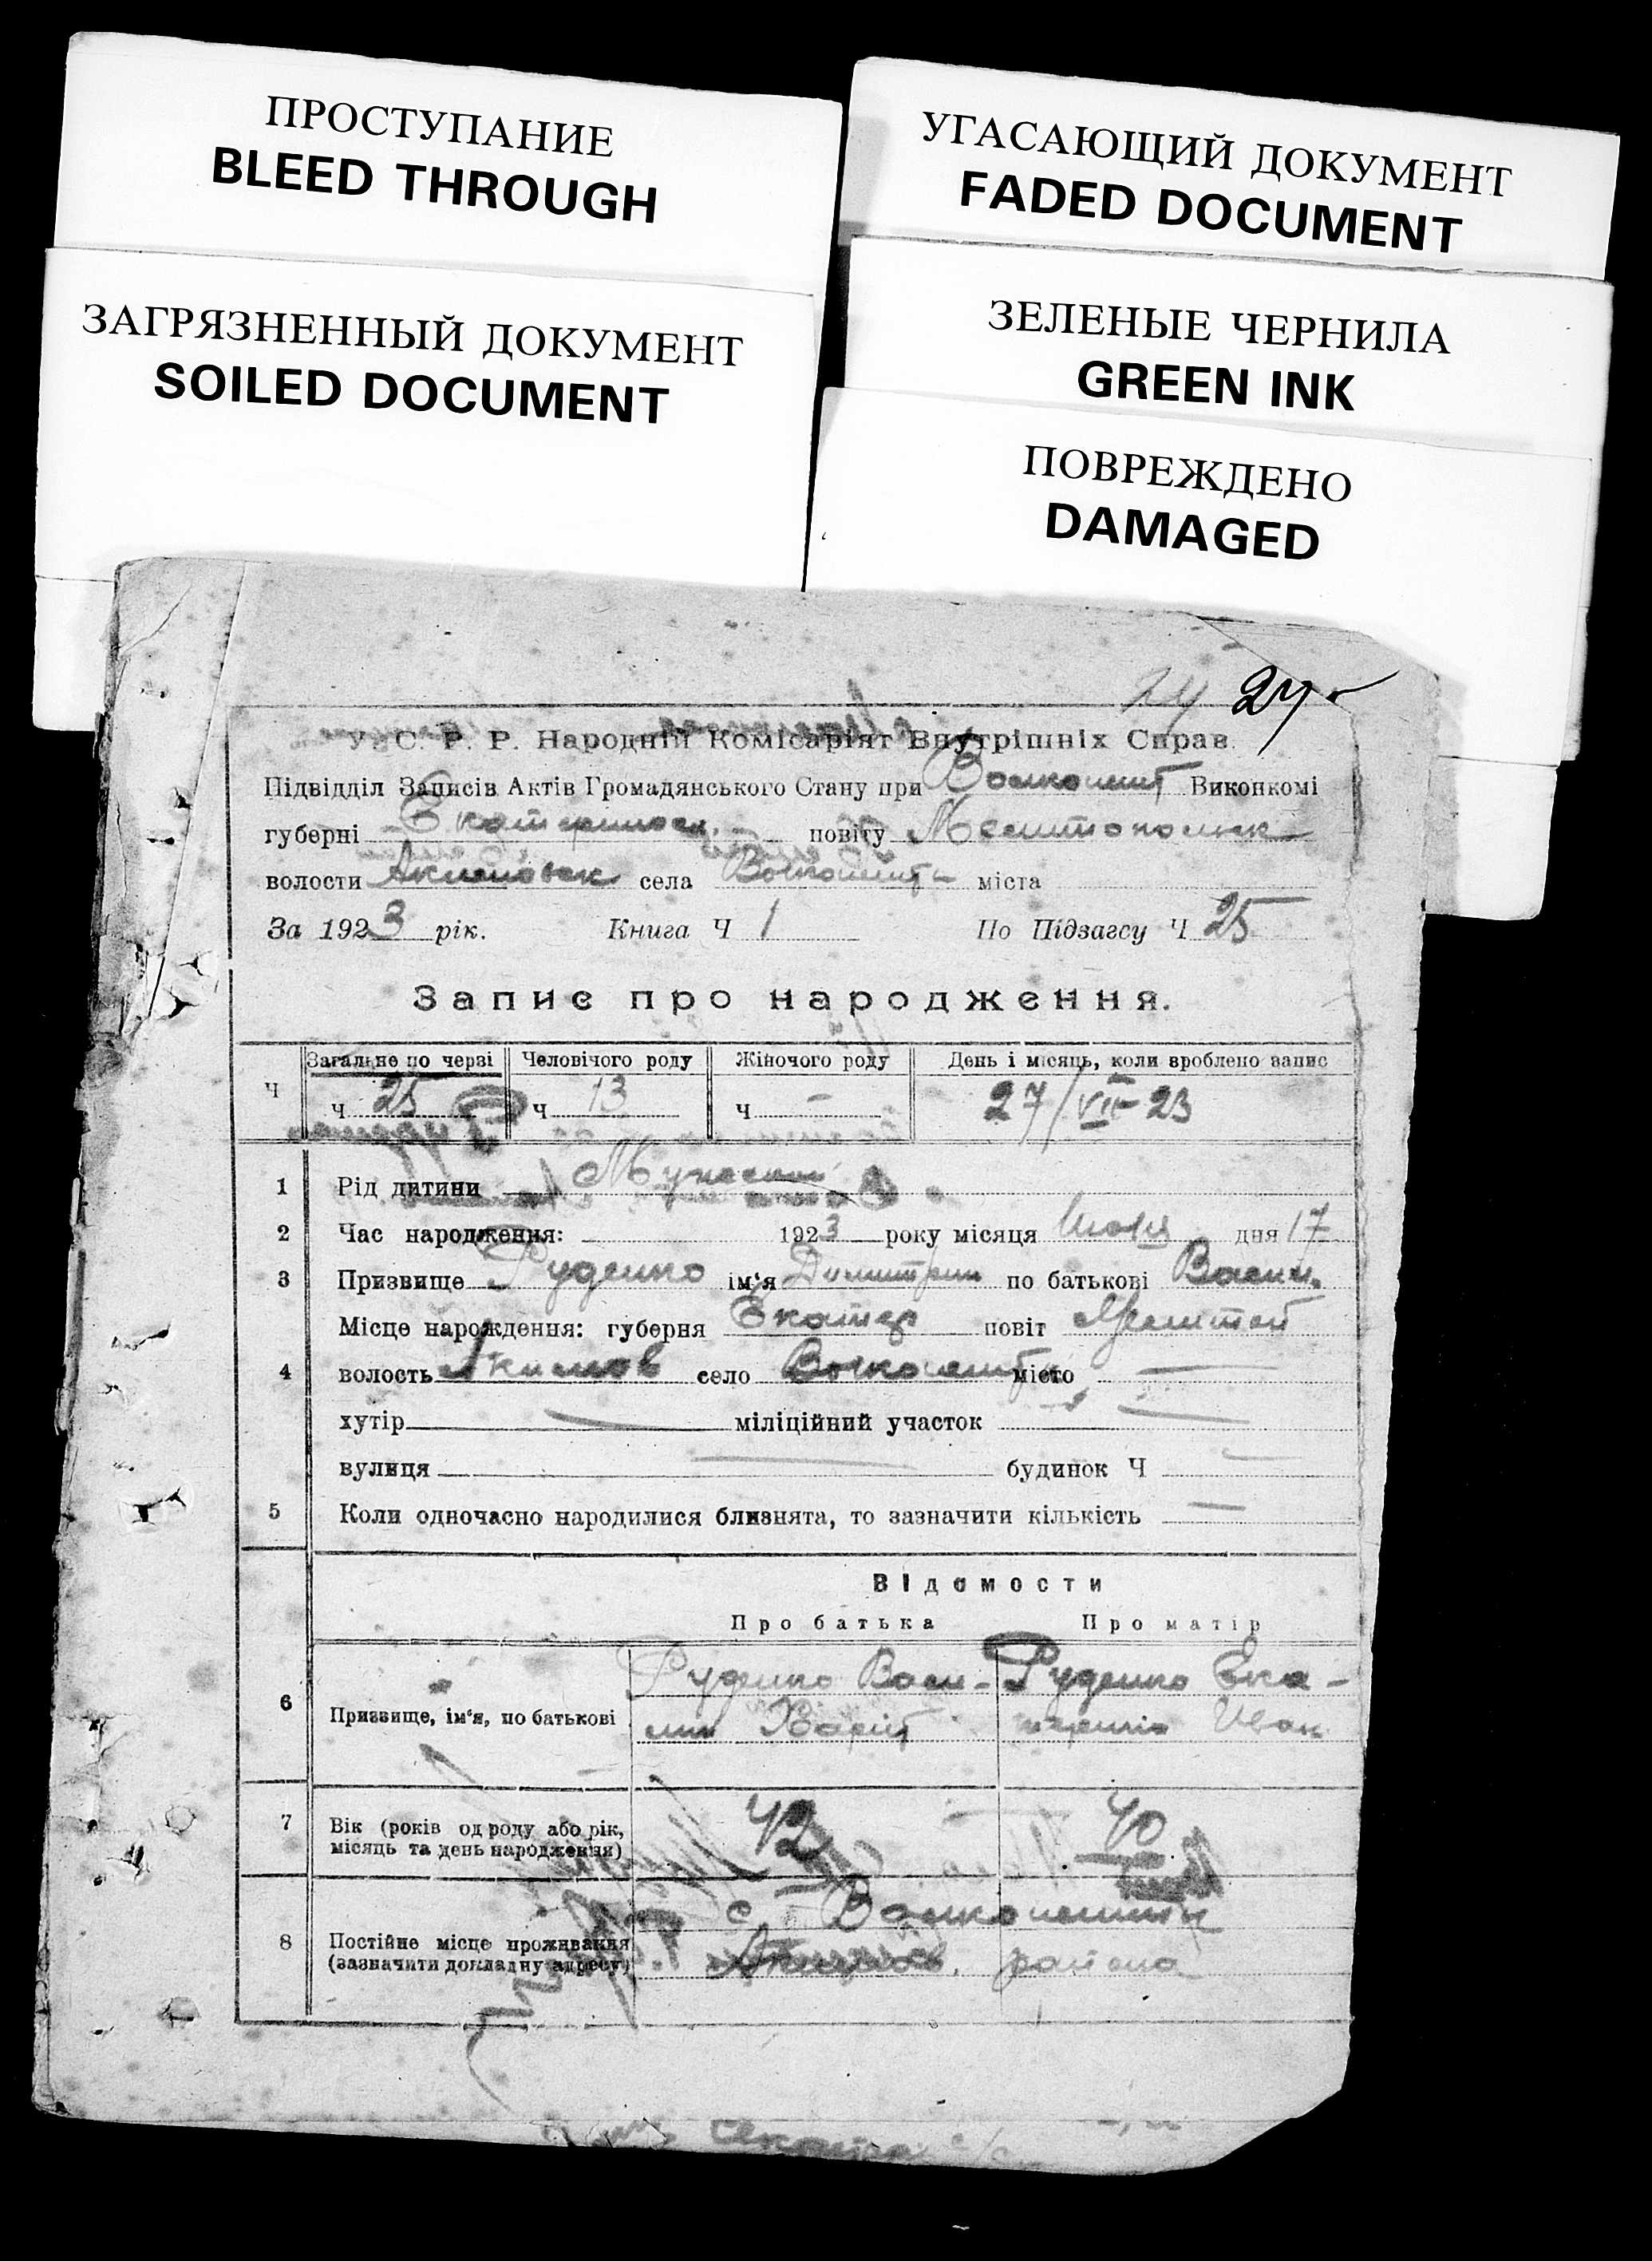 ПРОСТУПАНИЕ
BLEED THROUGH
ЗАГРЯЗНЕННЫЙ ДОКУМЕНТ
SOILED DOCUMENT
УГАСАЮЩИЙ ДОКУМЕНТ
FADED DOCUMENT
ЗЕЛЕНЫЕ ЧЕРНИЛА
GREEN INK
ПОВРЕЖДЕНО
DAMAGED
24 24
У. С. Р. Р. Народній Комісаріят Внутрішніх Справ.
Підвідділ Записів Актів Громадянського Стану при Виконкомі
губерні Екатериносл. повіту Мелитопольск
волости Акимовск села міста
За 1923 рік. Книга Ч 1 По Підзагсу Ч 25
Запис про народження.
Загальне по черзі Человічого роду Жіночого роду День і місяць, коли вроблено запис
Ч ч 25 ч 13 ч — 27/VII 23
1 Рід дитини Мужский
2 Час народження: 1923 року місяця Июля дня 17
3 Призвище Руденко ім'я Димитрий по батькові Васил.
Місце нарождення: губерня Екатер повіт Мелитоп
4 волость Акимов село місто —
хутір — міліційний участок —
вулиця — будинок Ч —
5 Коли одночасно народилися близнята, то зазначити кількість —
Відомости
Про батька Про матір
6 Призвище, ім'я, по батькові Руденко Васи- Руденко Ека-
лий Харит терина Иван
7 Вік (років од роду або рік, місяць та день народження) 42 40
8 Постійне місце проживання (зазначити докладну адресу) с.
Акимов. района